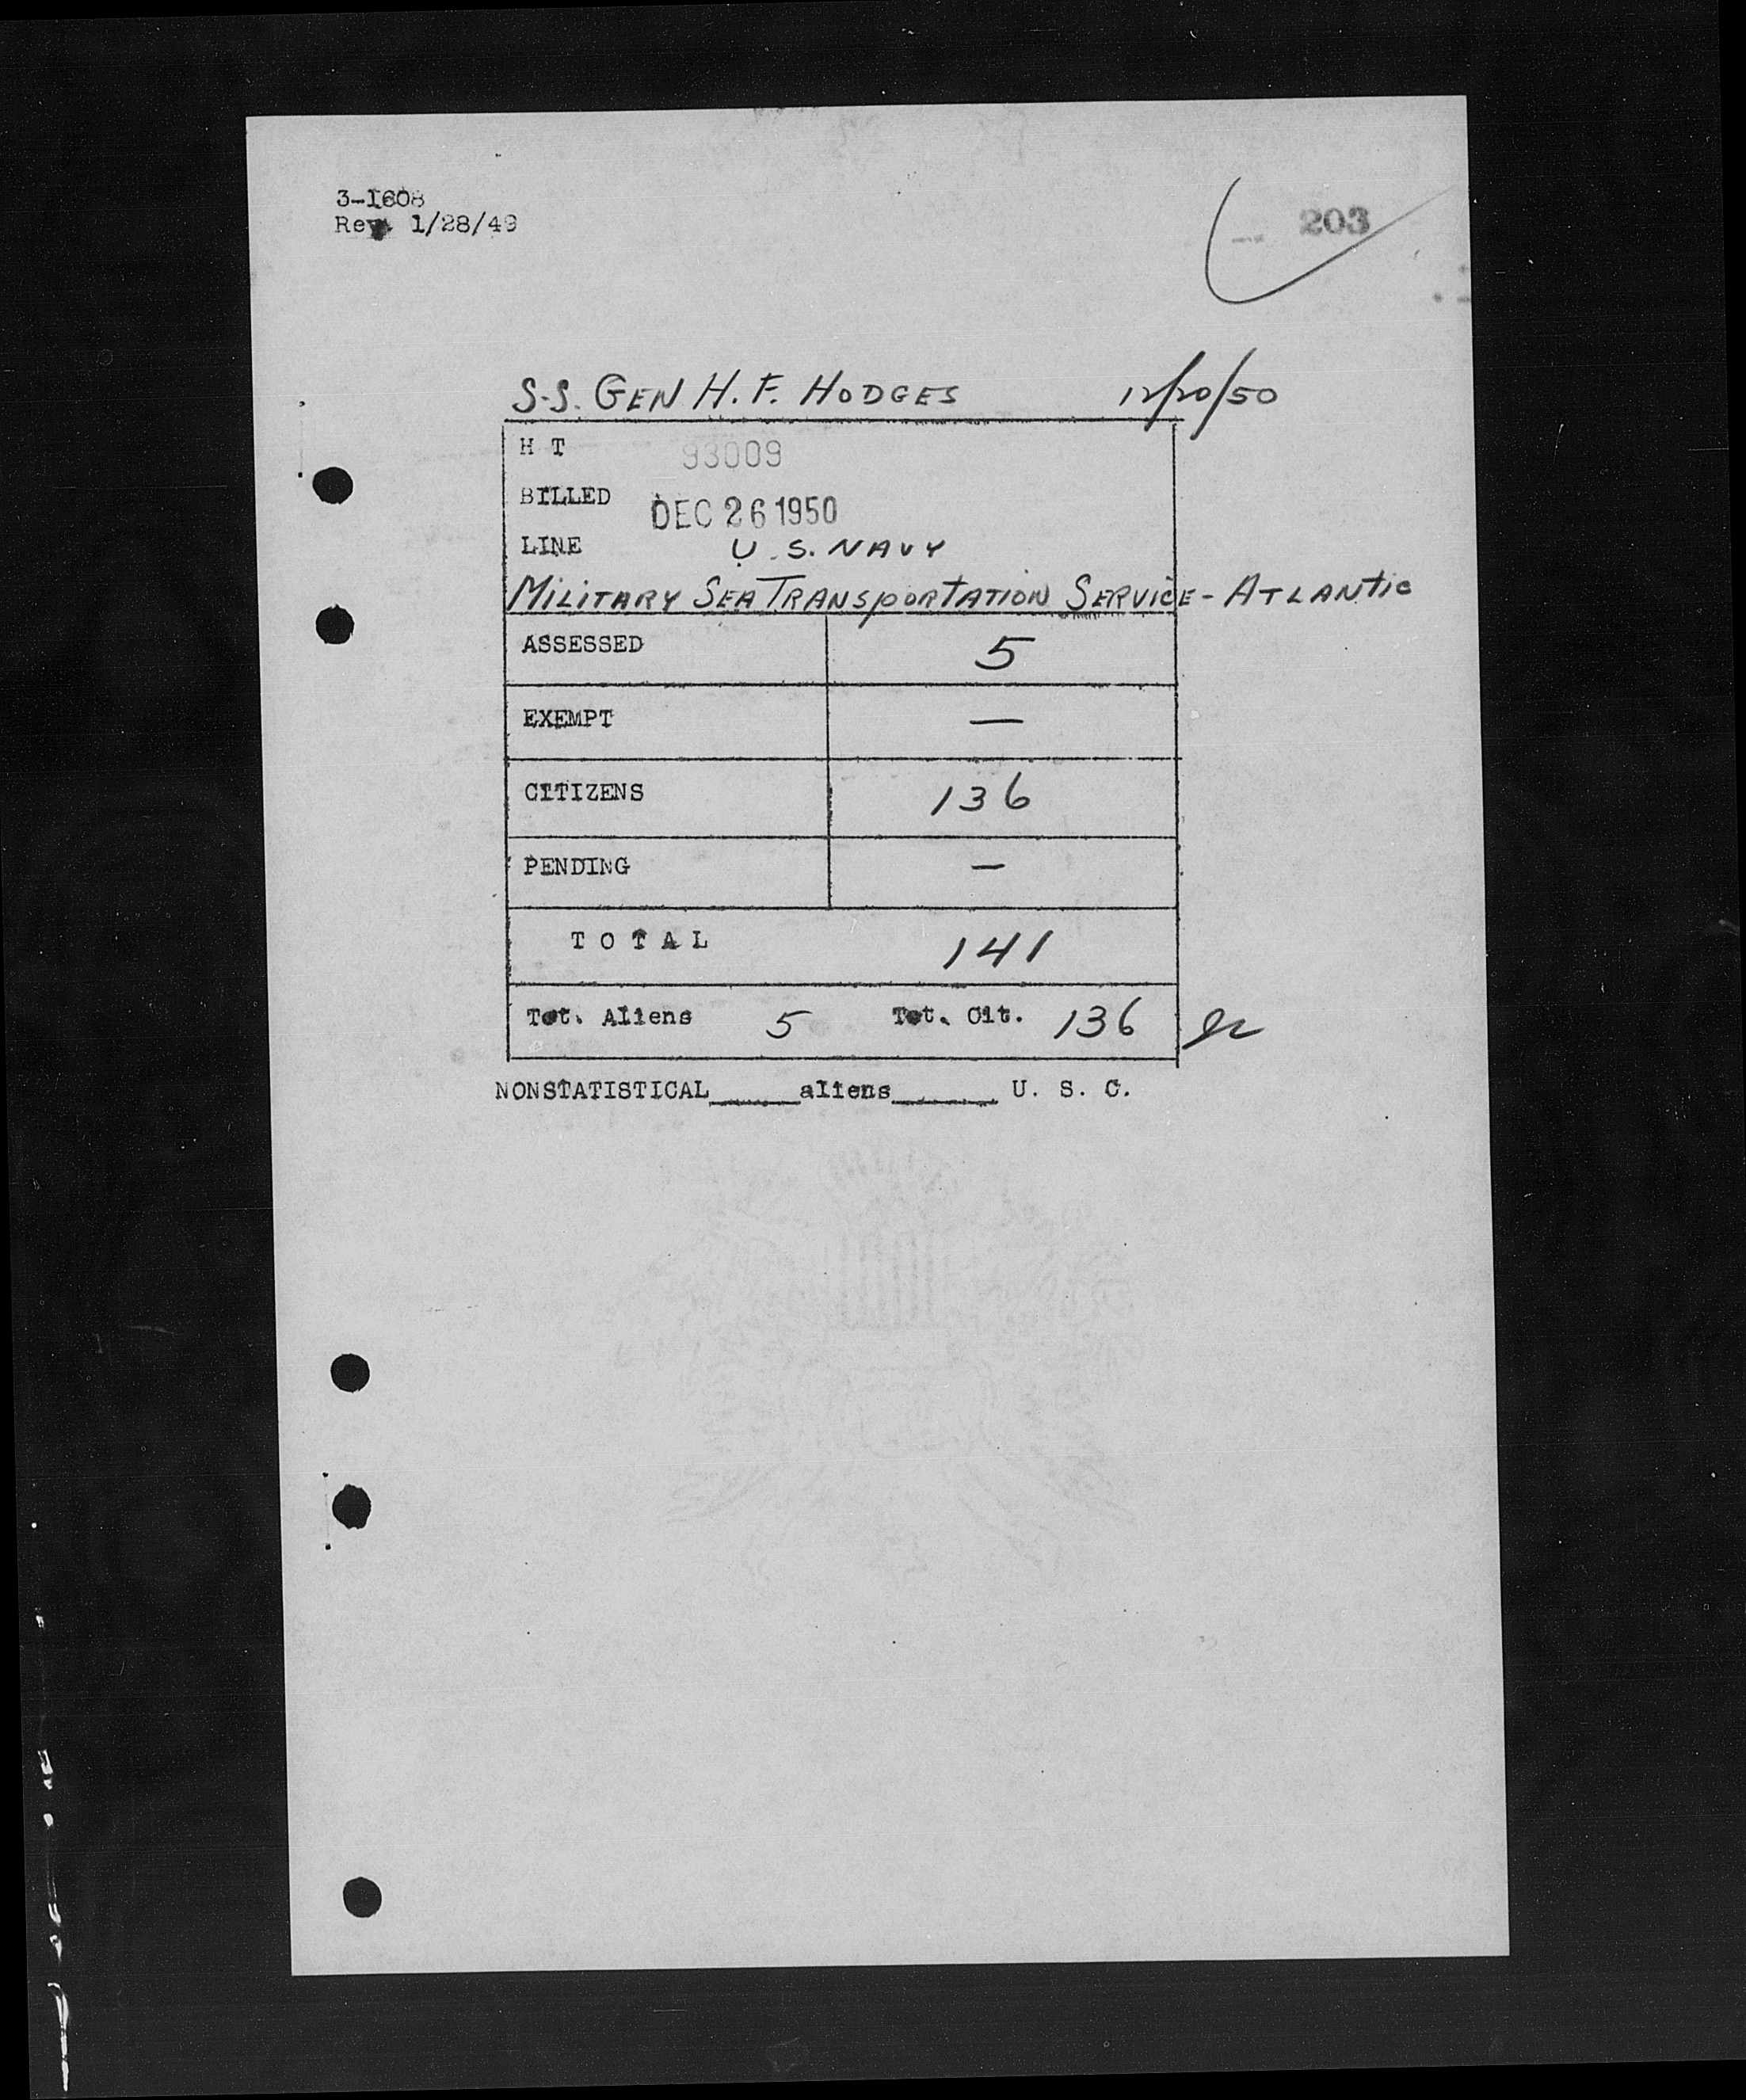 3-1608
Rev. 1/28/49
203
S.S. GEN H. F. HODGES 12/20/50
H T 93009
BILLED DEC 26 1950
LINE U.S. NAVY
MILITARY SEA TRANSPORTATION SERVICE - ATLANTIC
ASSESSED 5
EXEMPT —
CITIZENS 136
PENDING —
T O T A L 141
Tot. Aliens 5 Tot. Cit. 136
NONSTATISTICAL_____aliens______ U. S. C.